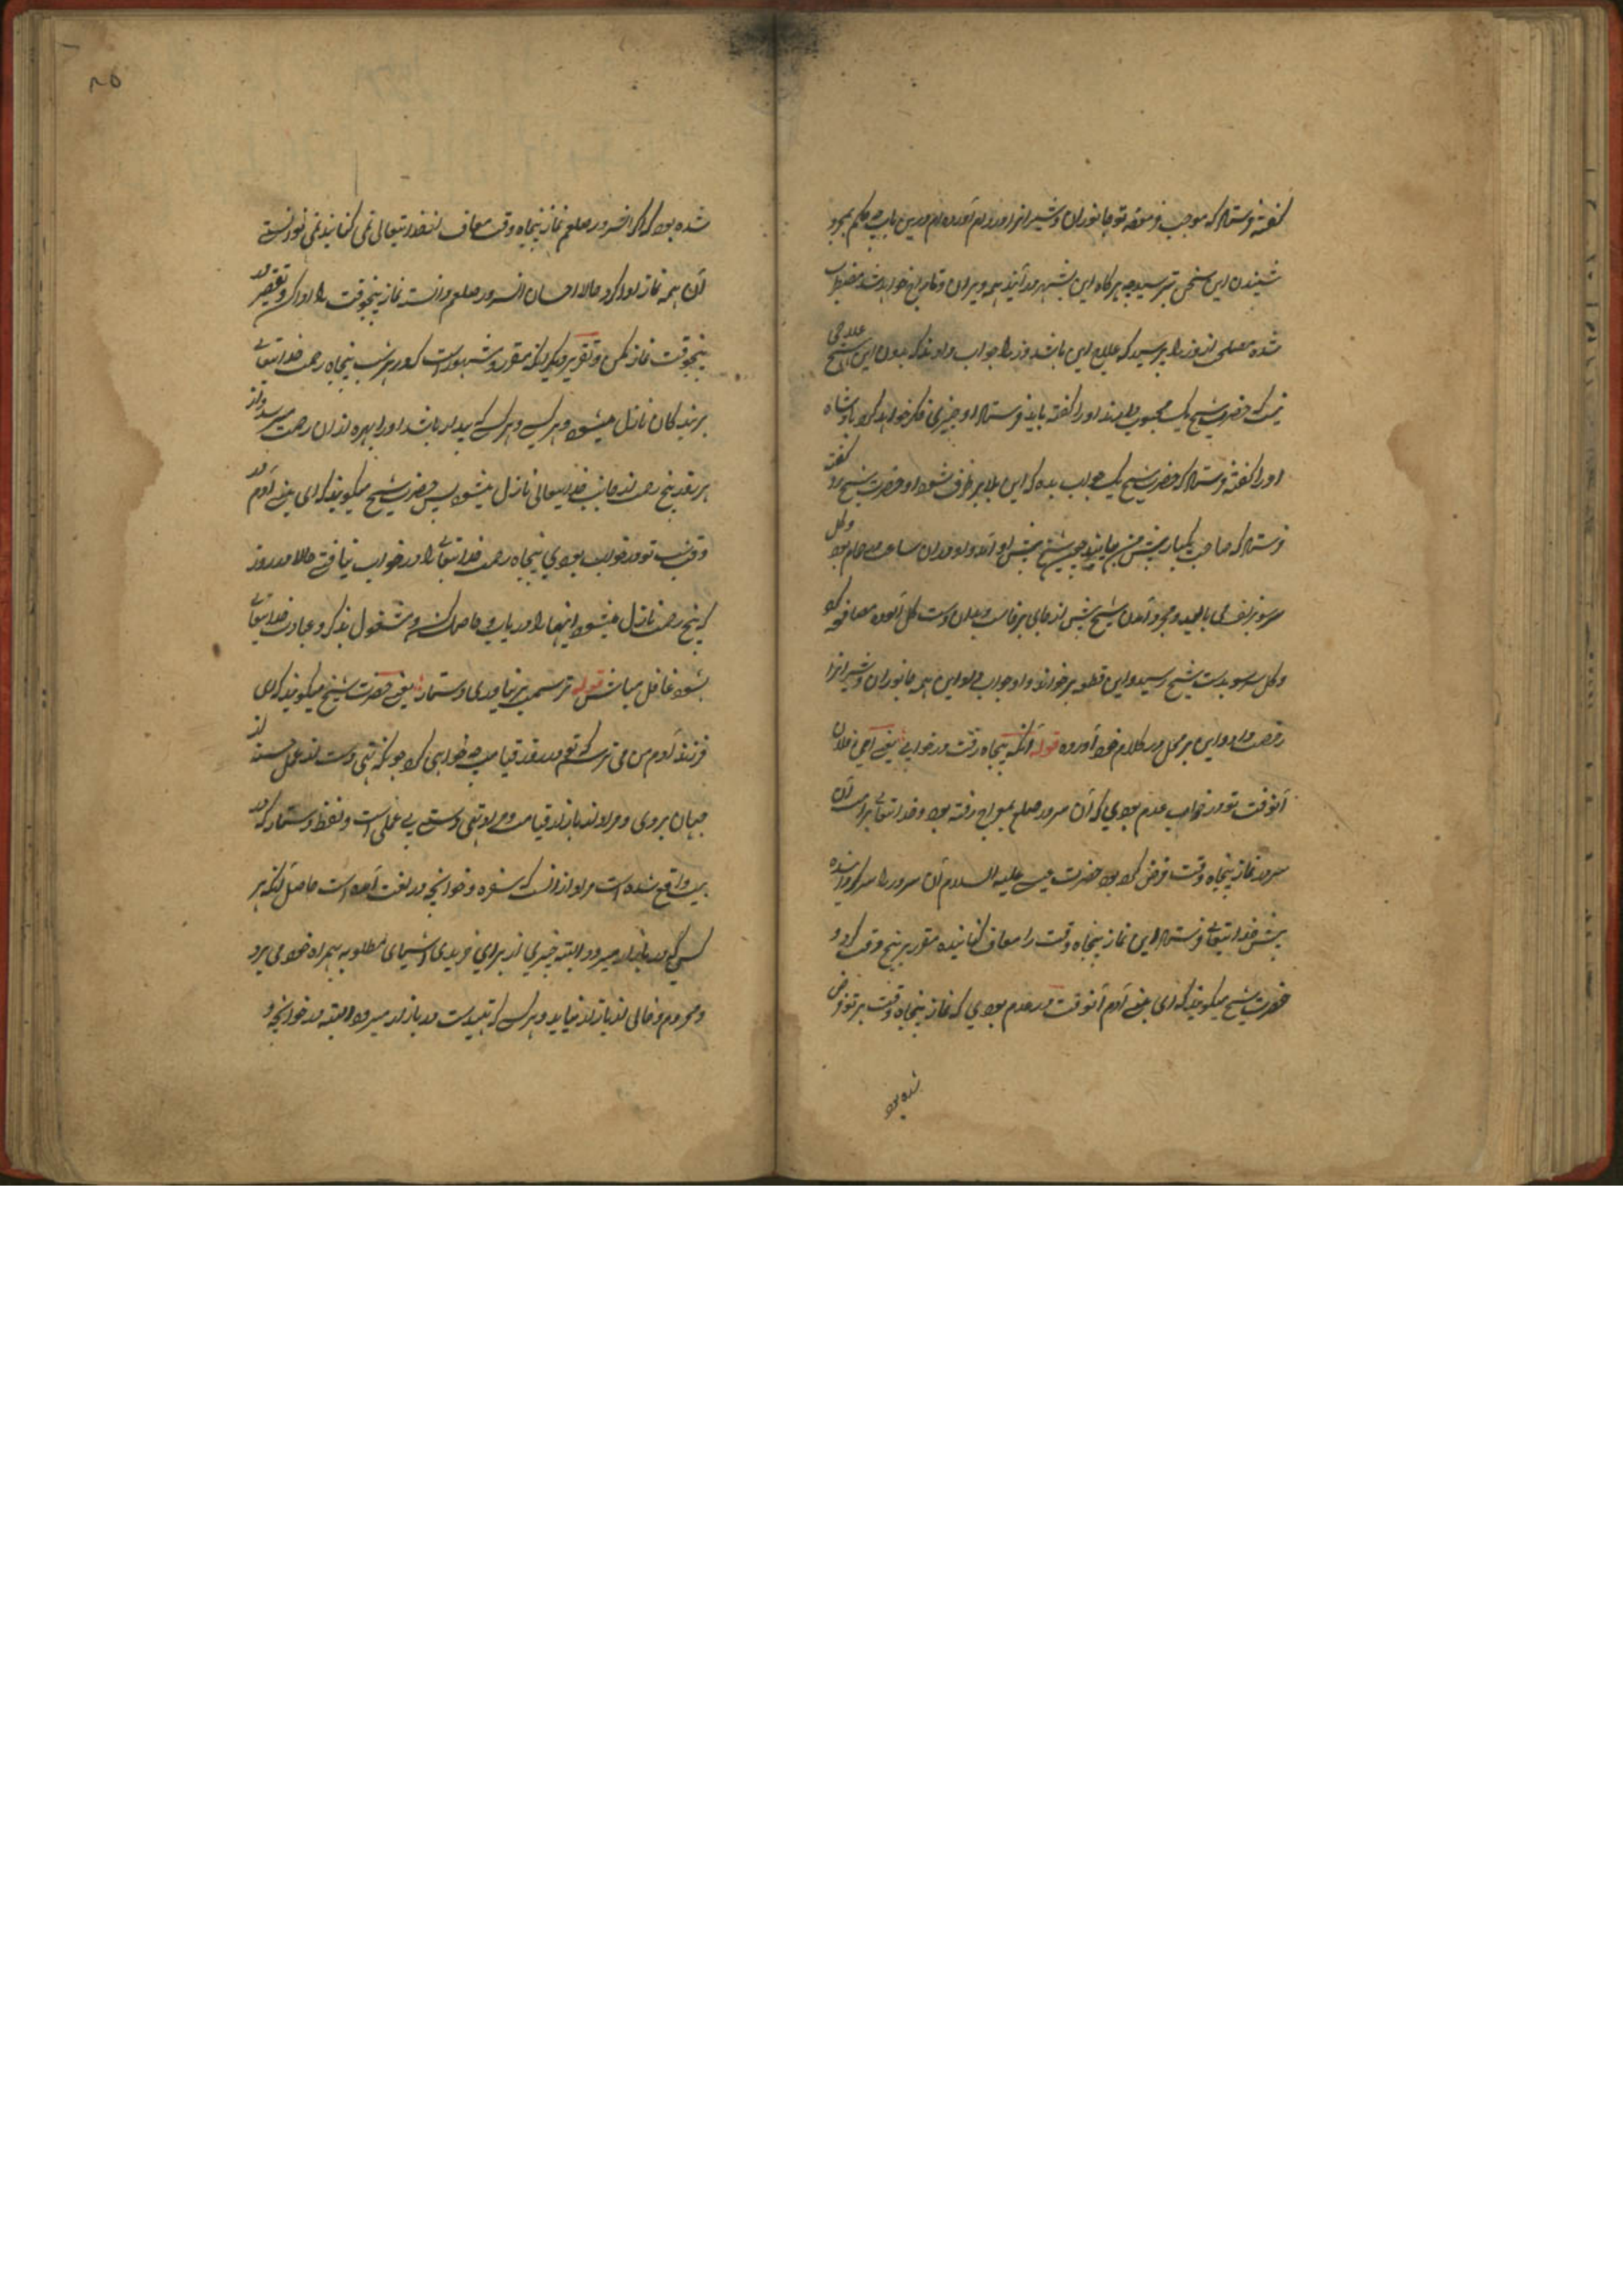 گفته فرستاد که موجب فرموده تو جانوران و شیر انرا اوردم آورده ام درین باب چه حکم بمجرد
شنیدن این سخن بترسید چه هرگاه این بشهر در آیند همه ویران و تاراج خواهد شد مضطرب
شده مصلحی از وزرا پرسید که علاج این باشد وزرا جواب دادند که بدون این علاجی
نیست که حضرت شیخ یک محبوب دارند او را گفته باید فرستاد او چیزی فکر خواهد کرد بادشاه
او را گفته فرستاد که حضرت شیخ یک جواب بده که این بلا بر طرف شود او حضرت شیخ را گفته
فرستاد که صاحب یکبار پیش من بیایند چون شیخ پیش او آمد و او در آن ساعت در حمام بود و گل
سرو بر بمجرد آمدن شیخ پیش از جای برخاست و بدان دست گل آلوده مصافحه کرد
و گل سر بدست شیخ رسید و این قطعه بر خواند و او جواب داد این همه جانوران و شیر انرا
رخصت داد و این بر محل در کلام خود آورده قوله آنکه پنجاه رفت و در خوابی یعنی ای فلان
آنوقت تو در خواب عدم بودی که آن سرور صلعم بمعراج رفته بود و خدایتعالی بر امت آن
سرور نماز پنجاه وقت فرض کرده بود حضرت عیسی علیه السلام آن سرور را
پیش خدایتعالی فرستاد این نماز پنجاه وقت را معاف کنانیده مقرر بر پنج وقت کرد و
حضرت شیخ میگویند که ای بنی آدم آنوقت در عدم بودی که نماز پنجاه وقت بر تو فرض
شده بود
۸۵
شده بود که اگر آنسرور صلعم نماز پنجاه وقت معاف از خدایتعالی نمی کنانید نمی توانستی
آن همه نماز ادا کرد حالا احسان آنسرور صلعم دانسته نماز پنجوقت را ادا کن و تقصیر در
پنجوقت نماز مکن و تقریر دیگر آنکه مقرر و مشهور است که در هر شب پنجاه رحمت خدایتعالی
بر بندگان نازل میشود و هر کسی که بیدار باشد او را بهره از ان رحمت میرسد و از
هر روز پنج رحمت از جانب خدایتعالی نازل میشود پس حضرت شیخ میگویند که ای بنی آدم در
وقت شب تو در خواب بودی پنجاه رحمت خدایتعالی را در خواب نیافتی حالا در روز
که پنج رحمت نازل میشود اینها را دریاب و حاصل کن و مشغول بذکر و عبادت خدایتعالی
بشو و غافل مباش قوله ترسمت پر نیاوردی دستار یعنی حضرت شیخ میگویند که ای
فرزند آدم من می ترسم که تو در روز قیامت چه خواهی کرد چونکه تهی دست از عمل حسنه از
جهان بروی و مراد از بازار قیامت و مراد تهی دستی بی عملی است و لفظ دستار که در
بیت واقع شده است مراد از آنست که سفره و خوانچه در لغت آمده است حاصل آنکه هر
کسی که در بازار میرود البته چیزی از برای خریدی اشیای مطلوبه همراه خود می برد
و محروم و خالی از بازار نیاید و هر کسی که تهیدست در بازار میرود البته در خوانچه و